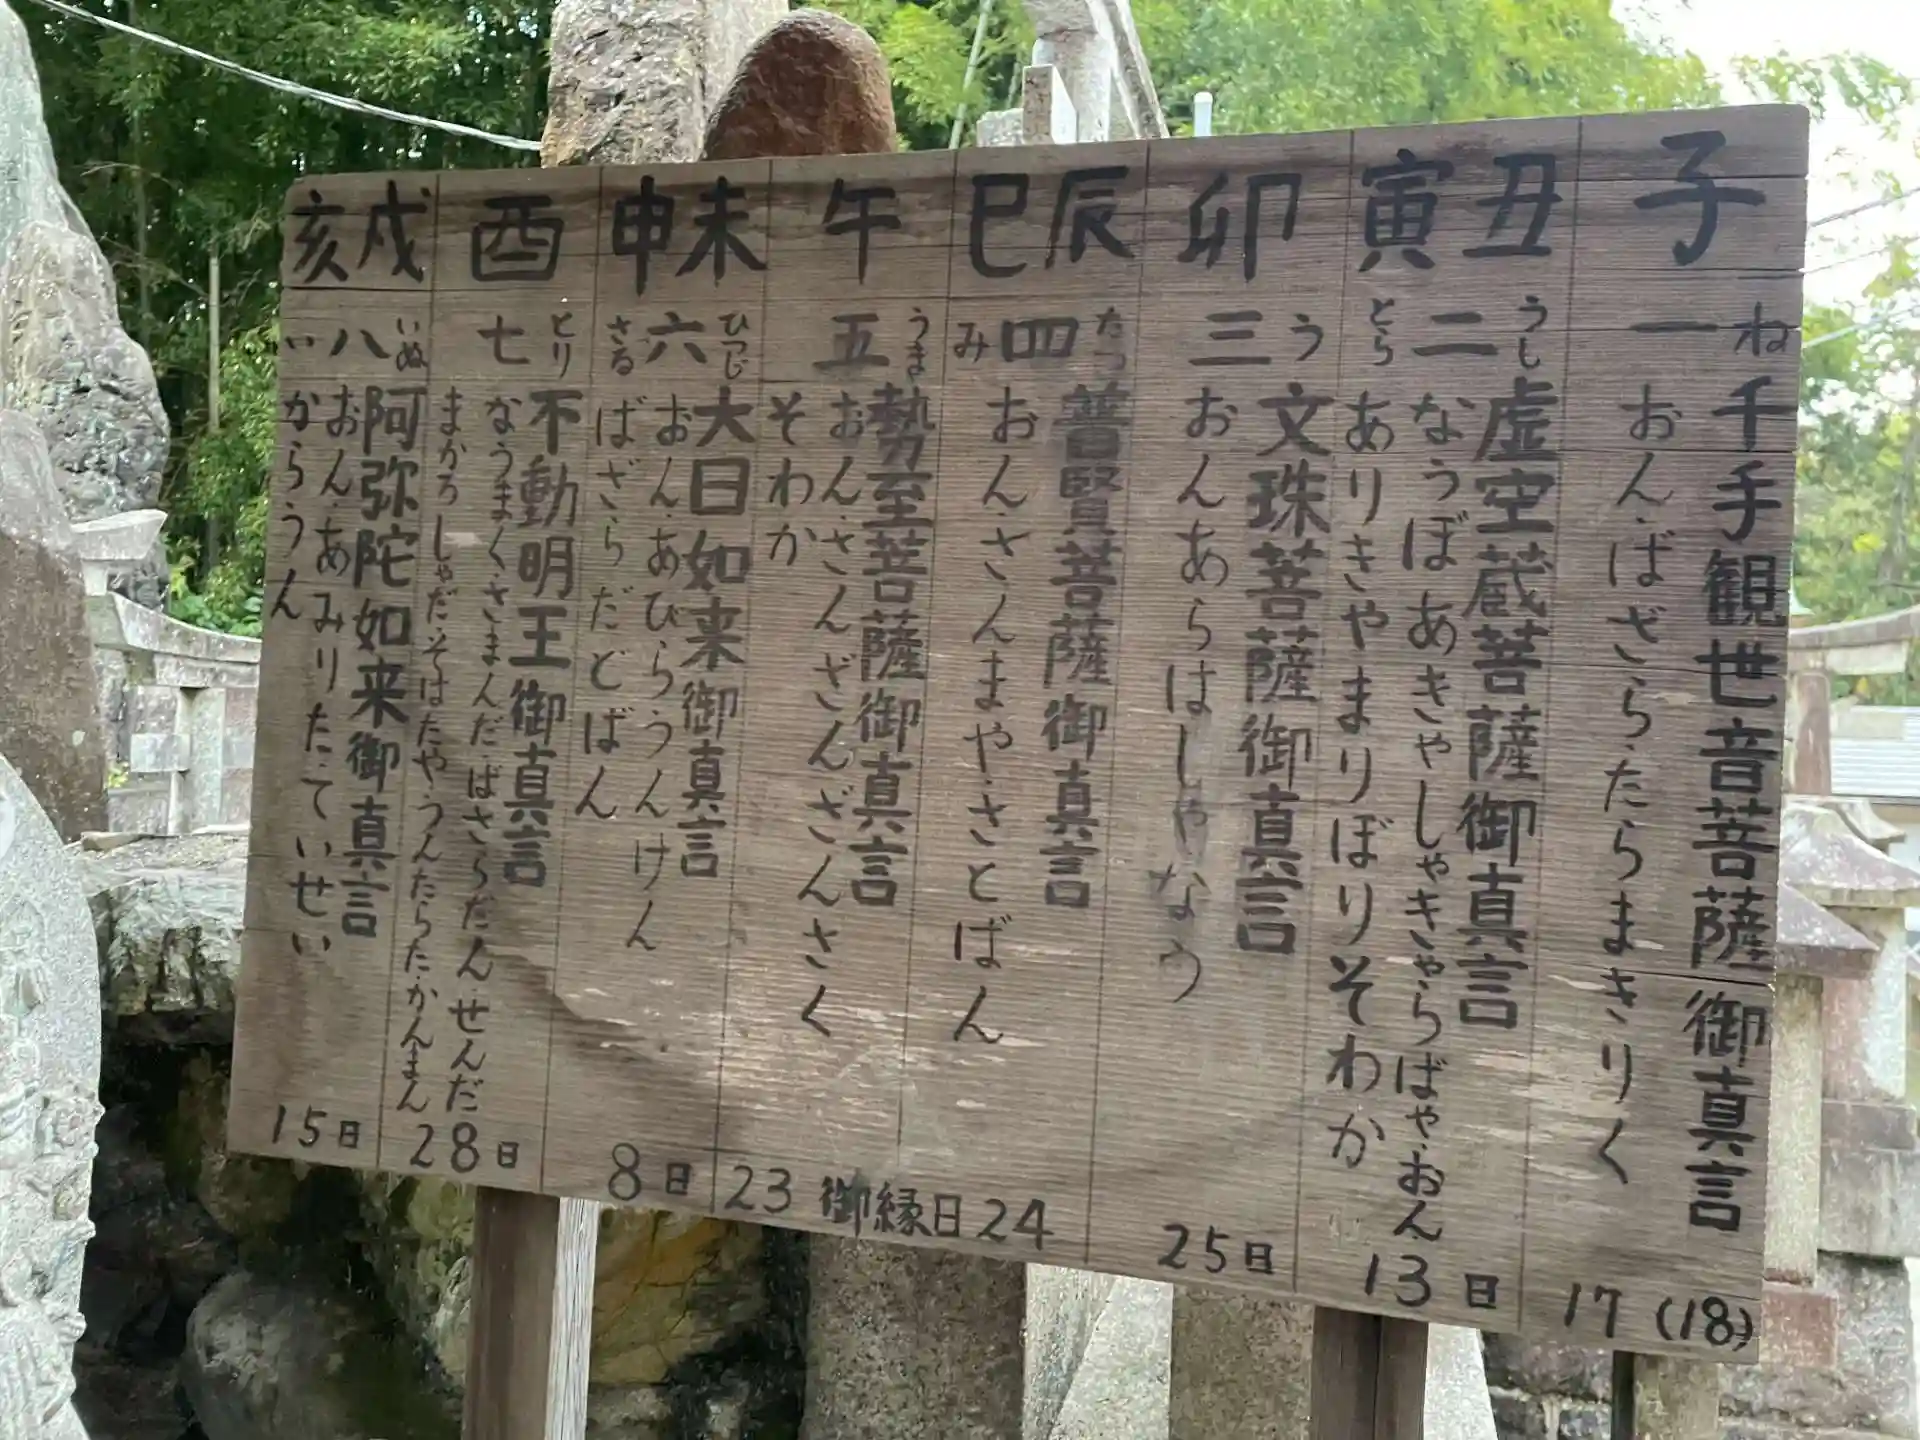 子
ね
一
千手観世音菩薩御真言
おん・ばざら・たらまきりく
17(18)
丑 寅
うし
二
とら
虚空蔵菩薩御真言
なうぼあきゃしゃきゃらばや・おん
ありきやまりぼりそわか
13日
卯
う
三
文珠菩薩御真言
おんあらはしゃなう
25日
辰 巳
たつ
四
み
普賢菩薩御真言
おん・さんまや・さとばん
24
午
うま
五
勢至菩薩御真言
おん・さんざんざんさく
そわか
御縁日
23
未 申
ひつじ
六
さる
大日如来御真言
おん・あびらうんけん
ばざらだどばん
8日
酉
とり
七
不動明王御真言
なうまく・さまんだ・ばさらだん・せんだ
まかろしゃだそはたや・うんたらた・かんまん
28日
戌 亥
いぬ
八
い
阿弥陀如来御真言
おん・あみりた・ていせい
からうん
15日